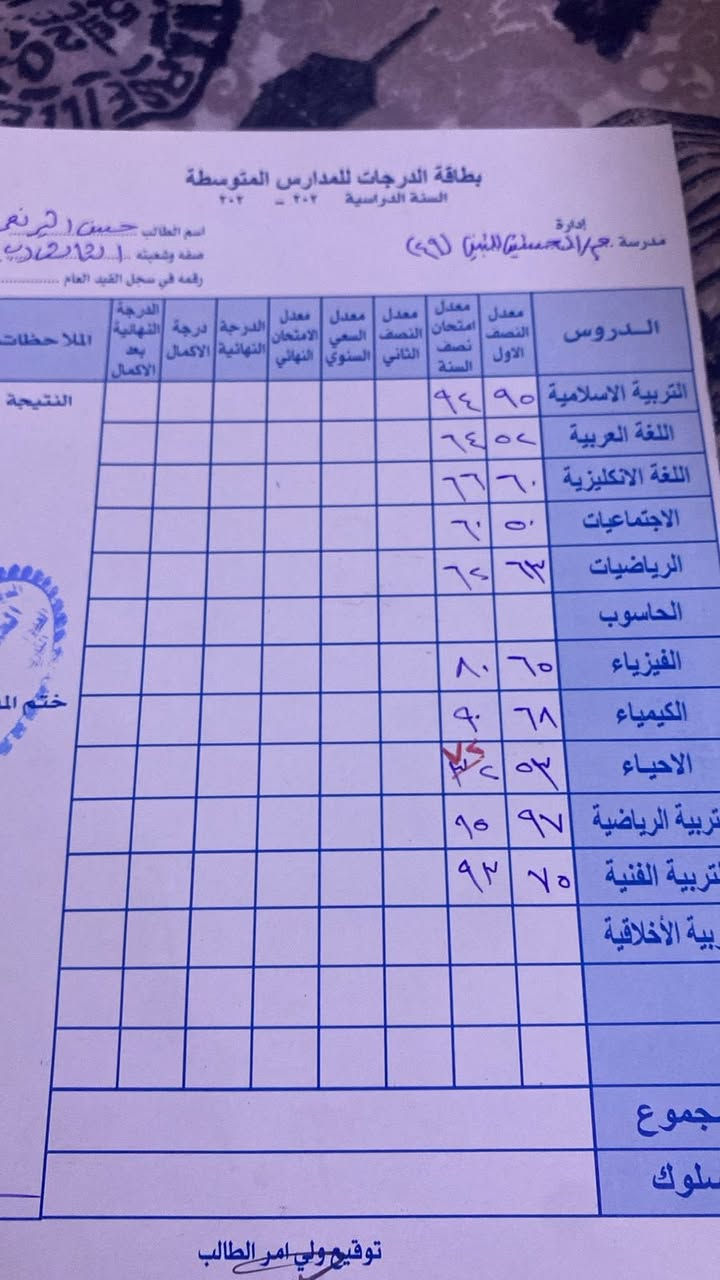 بطاقة الدرجات للمدارس المتوسطة
السنة الدراسية ٢٠٢ - ٢٠٢
إدارة
مدرسة
اسم الطالب حسن
صفه وشعبته الثالث
رقمه في سجل القيد العام
الـــدروس معدل النصف الاول معدل امتحان نصف السنة معدل النصف الثاني معدل السعي السنوي معدل الامتحان النهائي الدرجة النهائية درجة الاكمال الدرجة النهائية بعد الاكمال الملاحظات
التربية الاسلامية ٩٥ ٩٤ النتيجة
اللغة العربية ٥٢ ٦٤
اللغة الانكليزية ٦٠ ٦٦
الاجتماعيات ٥٠ ٦٠
الرياضيات ٦٣ ٦٢
الحاسوب
الفيزياء ٦٥ ٨٠
الكيمياء ٦٨ ٩٠ ختم الم
الاحياء ٥٣ ٧٢
تربية الرياضية ٩٧ ٩٥
لتربية الفنية ٧٥ ٩٣
بية الأخلاقية
جموع
سلوك
توقيع ولي امر الطالب